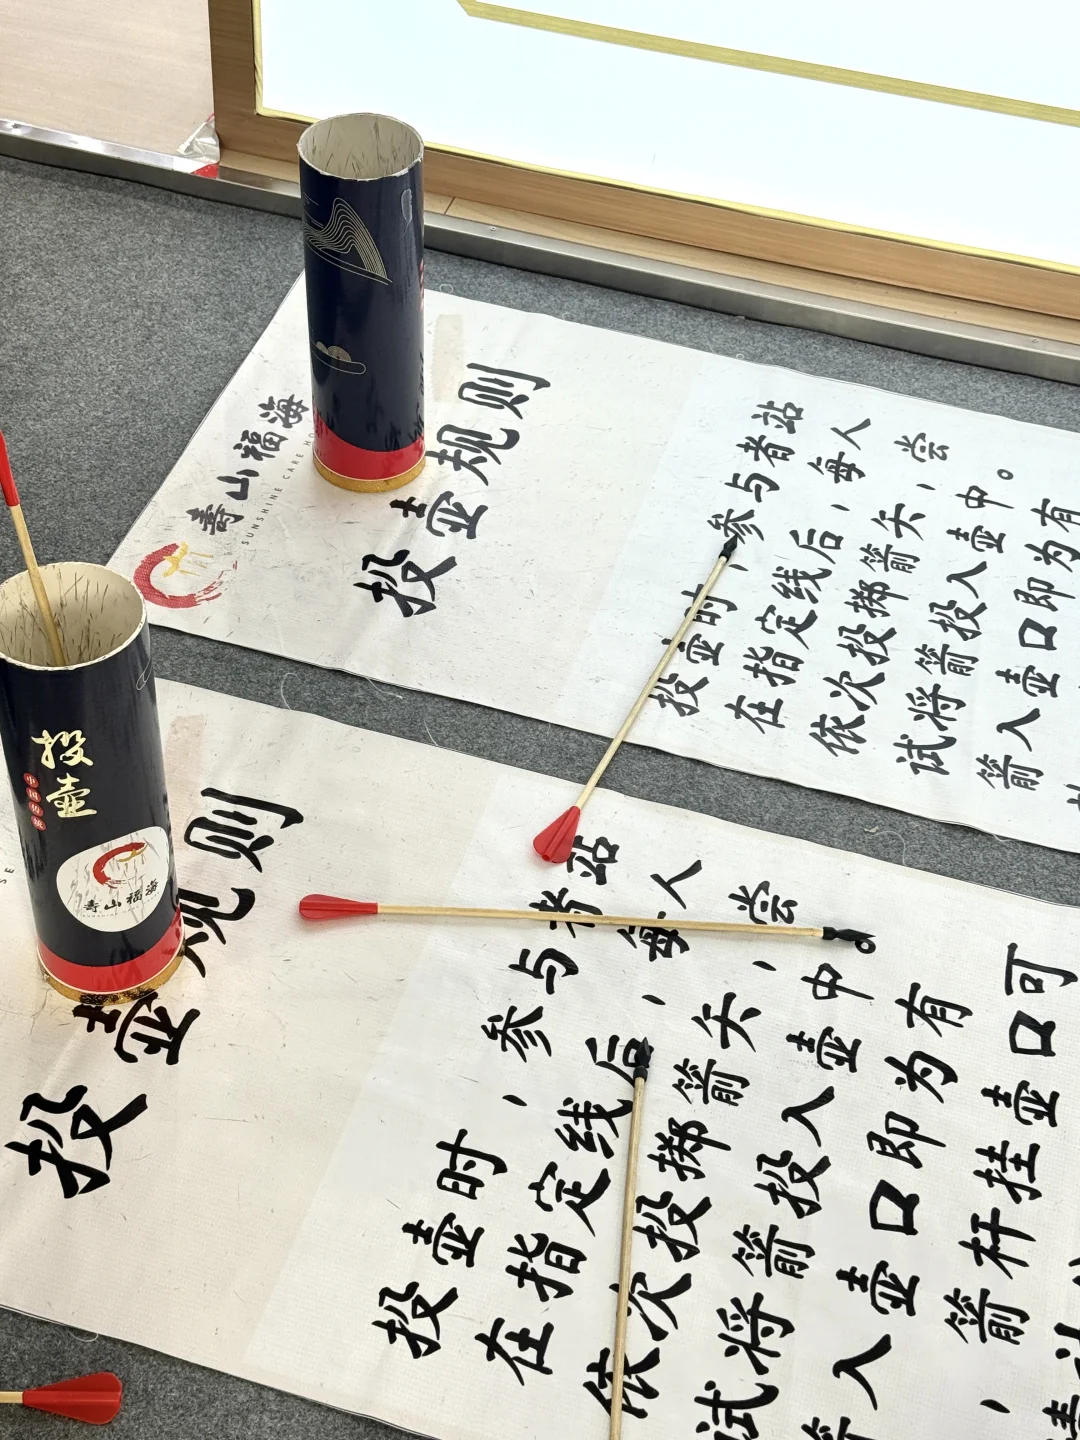 寿山福海
SUNSHINE CARE HO
投壶规则
投壶时，参与者站
在指定线后，每人
依次投掷箭矢，尝
试将箭投入壶中。
箭入壶口即为有
投壶
中国传统
寿山福海
SE
投壶规则
投壶时，参与者站
在指定线后，每人
依次投掷箭矢，尝
试将箭投入壶中。
箭入壶口即为有
，箭杆挂壶口可